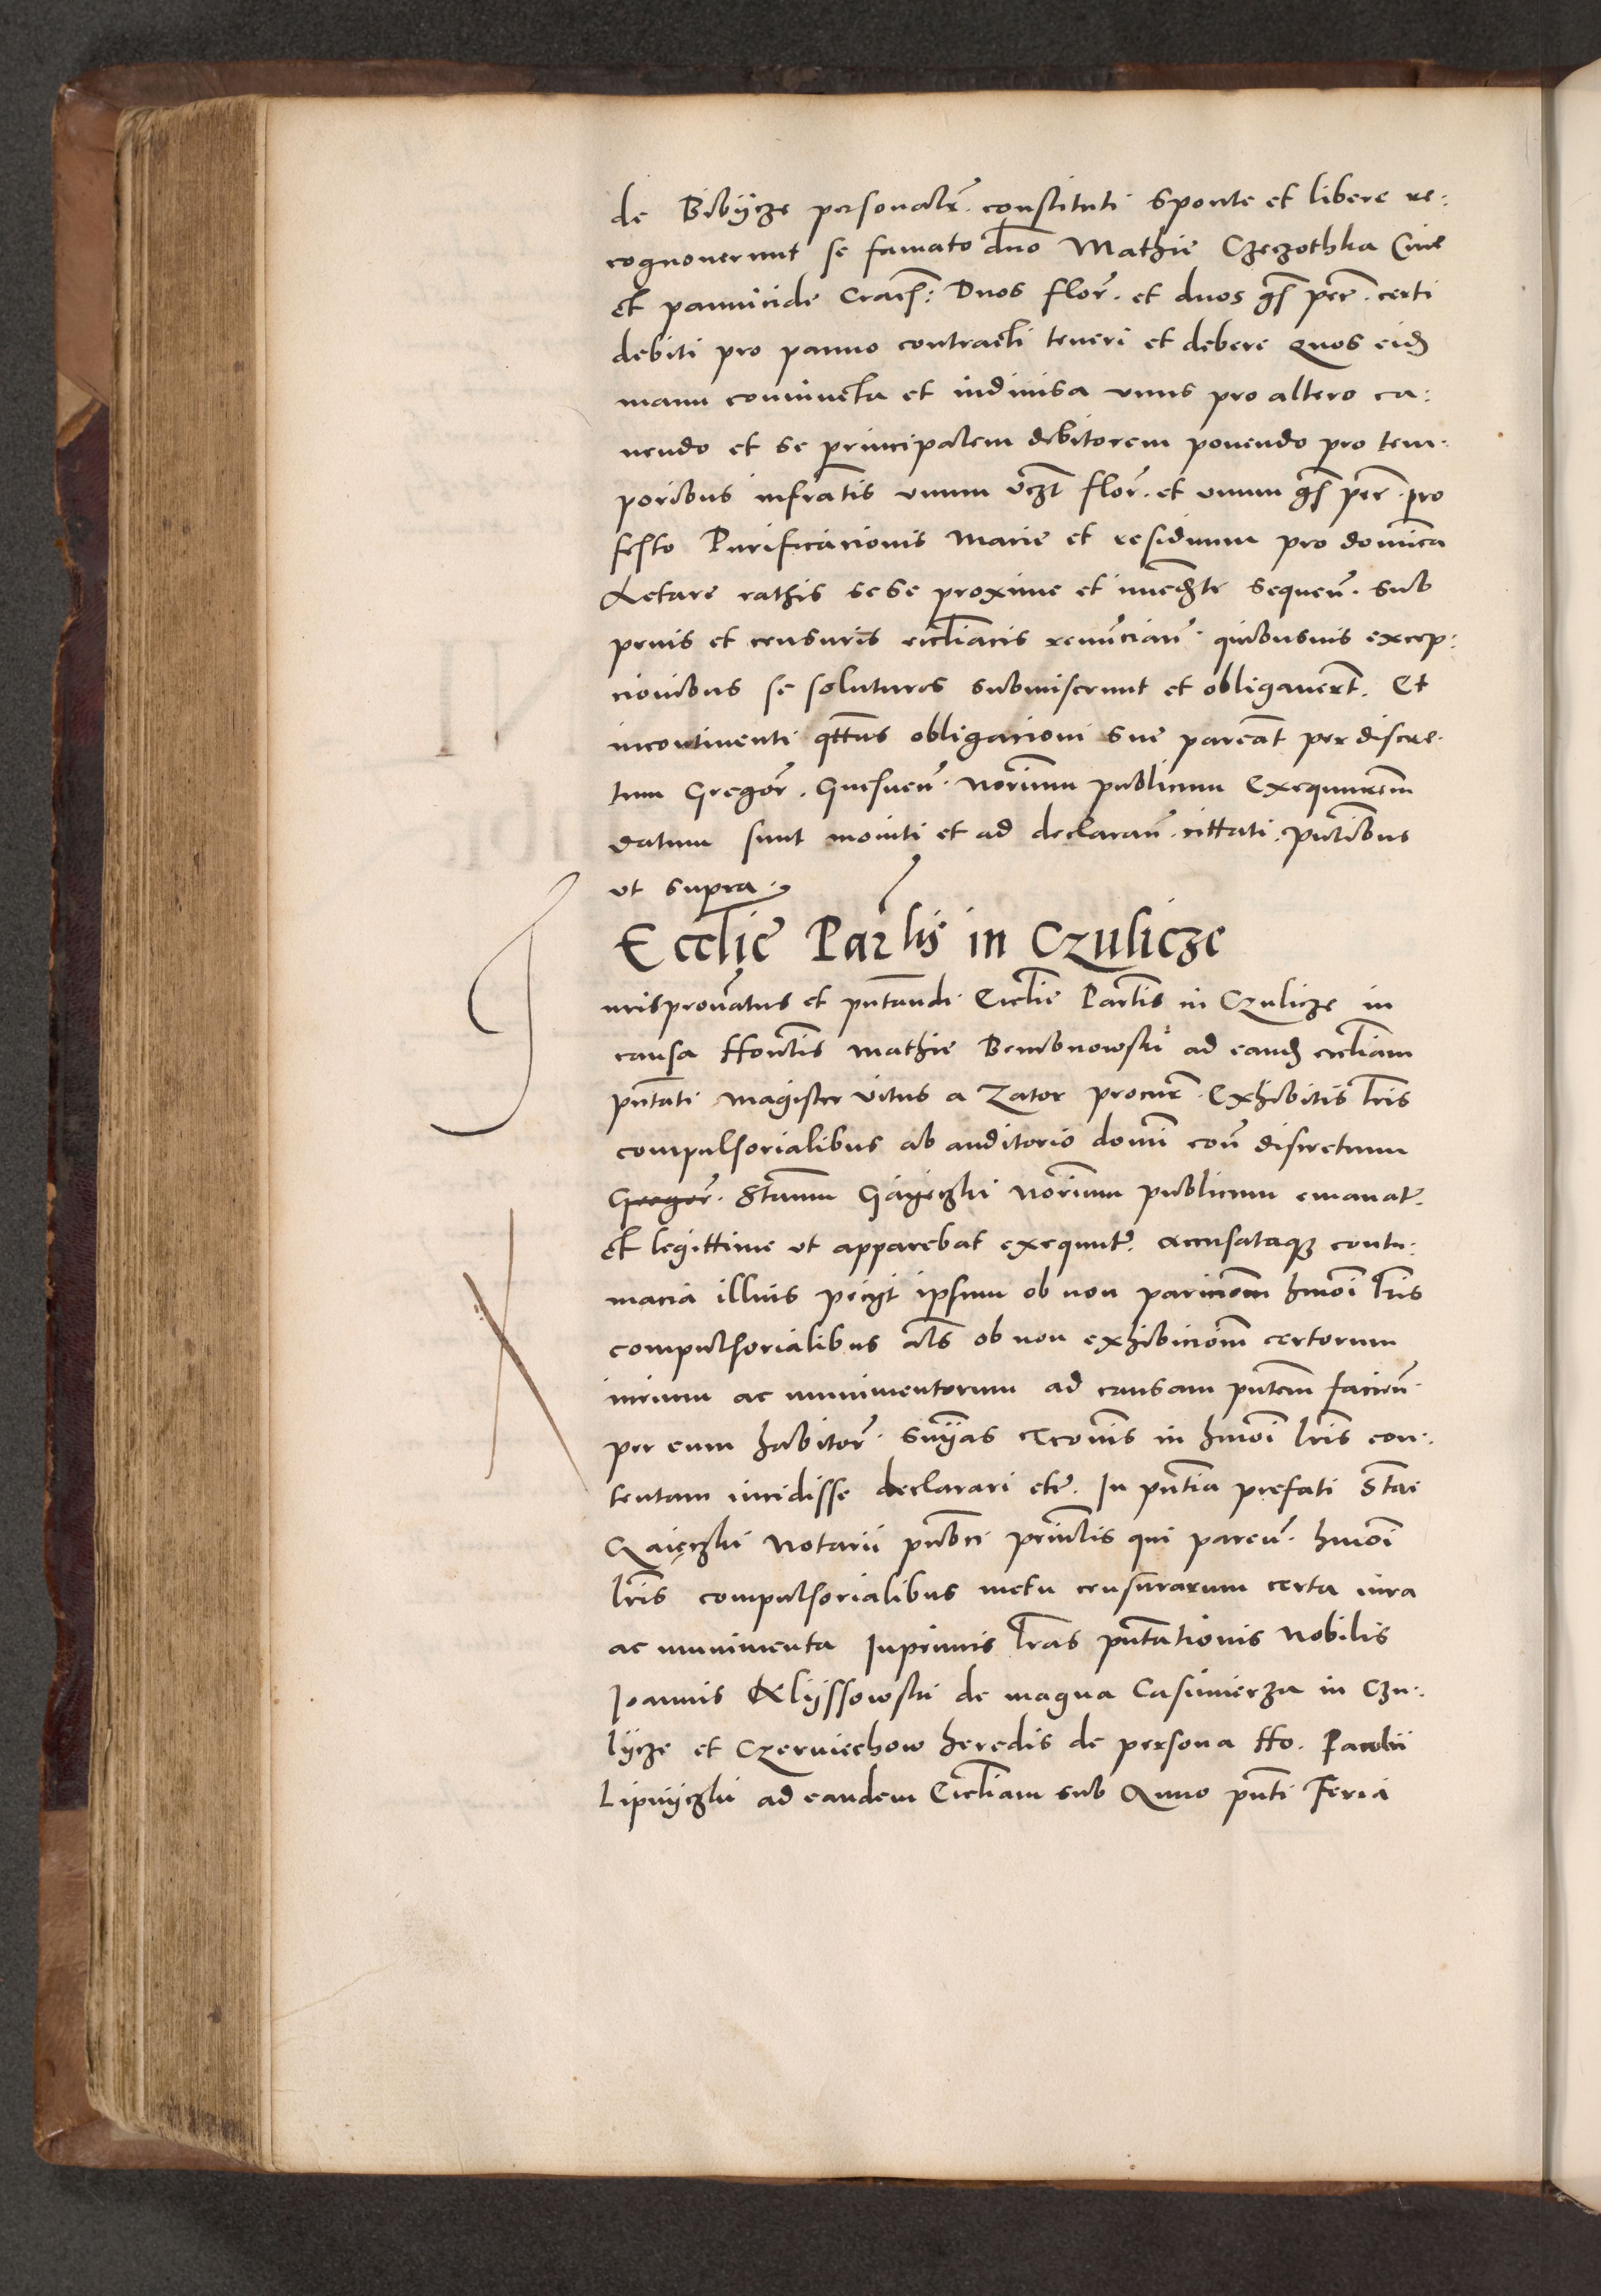 de Bibÿcze personalr̃. constituti sponte et libere re:
cognouerunt se famato dño Mathie Czeczothka Ciue
et pannicide Cracꝭ: Duos flor̃. et duos gꝭ per̃. certi
debiti pro panno contracti teneri et debere quos eidꝫ
manu coniuncta et indiuisa vnus pro altero ca:
uendo et se principalem debitorem ponendo pro tem:
poribus infrat̃is vnum vꝫt flor̃. et vnum gꝭ per̃. pro
festo Purificacionis Marie et residuum pro domĩca
Letare rathis sese proxime et imediate sequeñ. sub
penis et censuris eccl̃iacis renũcian̄. quibusuis excep:
cionibus se soluturos submiserunt et obligauer̃t. Et
incontinenti qt̃tus obligacioni sue pareãt per discre:
tum Gregor̃. Gnesneñ. Nor̃ium publicum Exequutorem
datum sunt moniti et ad declaran̄. cittati. pñtibus
vt supra.
Eccl̃ie Par̃lis in Czulicze
J
urispron̄atus et pñtandi Eccl̃ie Parl̃is in Czulicze in
causa Honl̃is Mathie Bembnowski ad eandꝫ eccl̃iam
pñtati Magister Vitus a Zator procur̃. Exhibitis l̃ris
compulsorialibus ab auditorio domi coñ discretum
Gregor̃. Stañum Gaÿeczki Nor̃ium publicum emanat̃.
et legittime vt apparebat exequut̃. accusataqꝫ contu:
macia illius pecyt ipsum ob non paricioem hmõi l̃ris
compulsorialibus al̃s ob non exhibicionẽ certorum
iurium ac munimentorum ad causam pñtem facien̄.
per eum habitor̃. sniãs excõis in hmõi l̃ris con:
tentam incidisse declarari etc̃. In pñtia prefati Stãi
Gaięczki Notarii publici principl̃is qui paren̄. hmõi
l̃ris compulsorialibus metu censurarum certa iura
ac munimenta Inprimis l̃ras pñtationis Nobilis
Joannis Klÿssowski de magna Casimierza in Czu:
lÿcze et Czerniechow heredis de persona Ho. Jacobi
Lipnÿczki ad eandem Eccl̃iam sub Anno pñti Feria